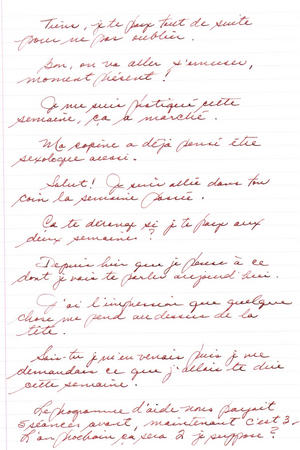 Tiens, je te paye tout de suite
pour ne pas oublier.
Bon, on va aller s'amuser,
moment présent !
Je me suis pratiqué cette
semaine, ça a marché.
Ma copine a déjà pensé être
sexologue aussi.
Salut ! Je suis allée dans ton
coin la semaine passée.
Ca te dérange si je te paye aux
deux semaines ?
Depuis hier que je pense à ce
dont je vais te parler aujourd'hui.
J'ai l'impression que quelque
chose me pend au dessus de la
tête.
Sais-tu j'm'en venais puis je me
demandais ce que j'allais te dire
cette semaine.
Le programme d'aide nous payait
5 séances avant, maintenant c'est 3.
L'an prochain ça sera 2 je suppose ?